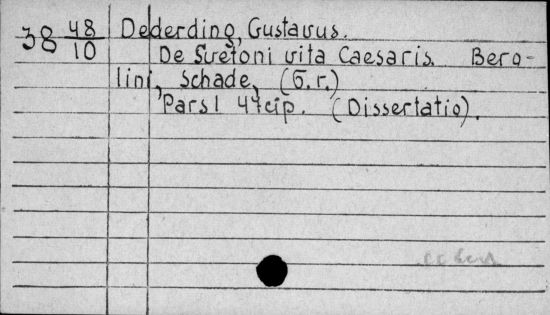 38 48/10 Dederding, Gustavus.
De Svetoni vita Caesaris. Bero-
lini, Schade, (б.г.)
Pars I 47 стр. (Dissertatio).